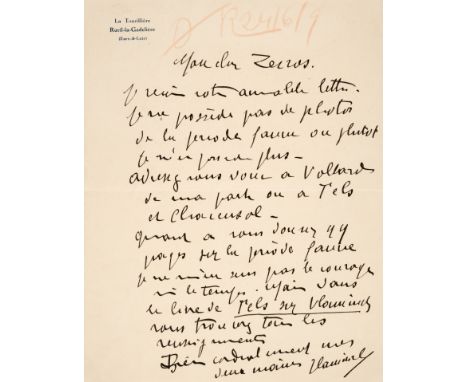 La Tourillière
Rueil-la-Gadelière
(Eure-&-Loir)
R 24/6/9
Mon cher Zervos.
Je reçois votre aimable lettre.
Je ne possède pas de photos
de la période fauve ou plutôt
je n'en possède plus –
adressez vous donc à Vollard
de ma part ou à Fels
et Charensol –
quant à vous donner qq
pages sur la période fauve
je ne m'en sens pas le courage
ni le temps. Mais dans
le livre de Fels sur Vlaminck
vous trouverez tous les
renseignements
Bien cordialement mes
deux mains Vlaminck